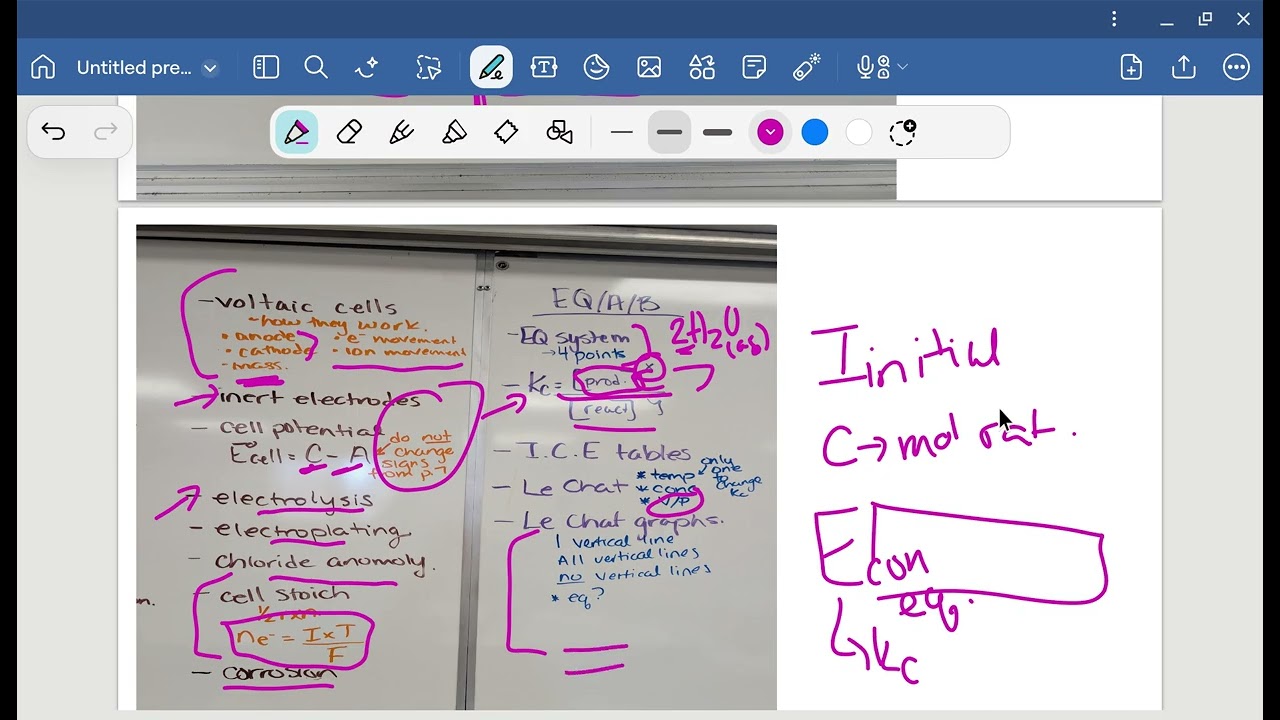 Untitled pre...
- voltaic cells
~ how they work.
• anode • e⁻ movement
• cathode • ion movement
- mass.
- inert electrodes
- cell potential
E°cell = C - A
do not
change
signs
from p.7
- electrolysis
- electroplating
- chloride anomoly.
- cell stoich
ne⁻ = I×T
F
- corrosion
EQ/A/B
- EQ system
→ 4 points
2H₂O
- Kc = [prod.]ˣ
[react]ʸ
- I.C.E tables
- Le Chat
* temp
* conc
* V/P
only
one
to
change
Kc
- Le Chat graphs.
1 vertical line
All vertical lines
no vertical lines
* eq?
Initial
C → mol rat.
E con
eq.
↳ Kc